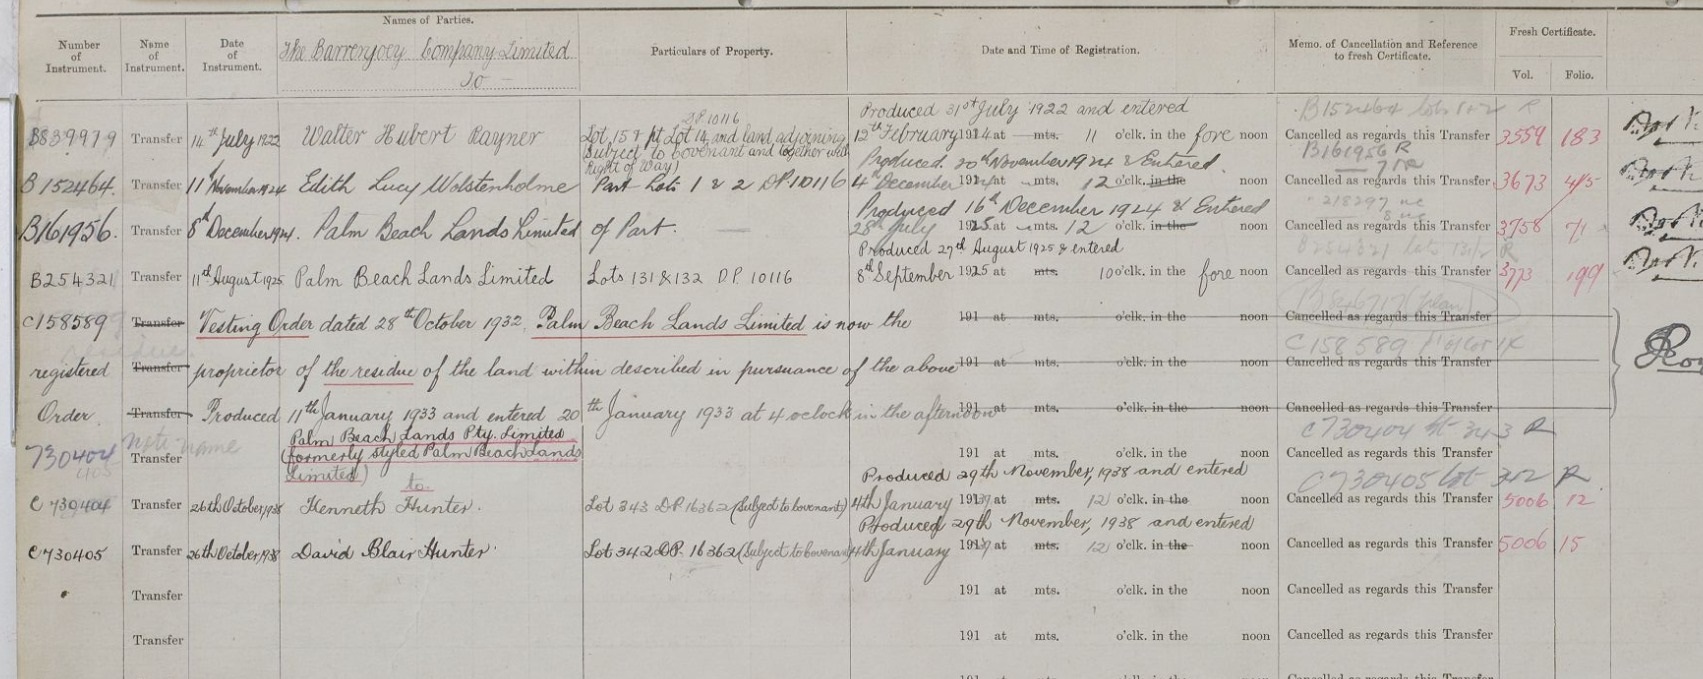 Names of Parties.
Number of Instrument.
Name of Instrument.
Date of Instrument.
The Barrenjoey Company Limited
To
Particulars of Property.
Date and Time of Registration.
Memo. of Cancellation and Reference to fresh Certificate.
Fresh Certificate.
Vol.
Folio.
B152464 lots 1+2 R
Produced 31st July 1922 and entered
DP 10116
B839979 Transfer 14th July 1922 Walter Hubert Rayner Lot 15 & pt Lot 14, and land adjoining 12th February 1924 at — mts. 11 o'clk. in the fore noon Cancelled as regards this Transfer 3559 183
(Subject to Covenant and together with
Right of Way)
B161956 R
Produced 20th November 1924 & Entered
B152464. Transfer 11th November 1924 Edith Lucy Wolstenholme Part Lots 1 & 2 DP 10116 4th December 1924 at — mts. 12 o'clk. in the noon Cancelled as regards this Transfer 3673 4/5
218297
Produced 16th December 1924 & Entered
B161956. Transfer 8th December 1924. Palm Beach Lands Limited of Part. 28th July 1925 at — mts. 12 o'clk. in the noon Cancelled as regards this Transfer 3758 71
Produced 27th August 1925 & entered
B254321 lots 131/2 R
B254321 Transfer 11th August 1925 Palm Beach Lands Limited Lots 131 & 132 D.P. 10116 8th September 1925 at mts. 10 o'clk. in the fore noon Cancelled as regards this Transfer 3773 199
(plan)
C158589 Transfer Vesting Order dated 28th October 1932. Palm Beach Lands Limited is now the 191 at mts. o'clk. in the noon Cancelled as regards this Transfer
residue
C158589
registered Transfer proprietor of the residue of the land within described in pursuance of the above 191 at mts. o'clk. in the noon Cancelled as regards this Transfer
Order. Transfer Produced 11th January 1933 and entered 20th January 1933 at 4 oclock in the afternoon 191 at mts. o'clk. in the noon Cancelled as regards this Transfer
C730404 lot 343 R
Palm Beach Lands Pty. Limited
note name
730404 Transfer (formerly styled Palm Beach Lands 191 at mts. o'clk. in the noon Cancelled as regards this Transfer
405
Limited)
to
Produced 29th November, 1938 and entered
C730405 lot 342 R
C 730404 Transfer 26th October, 1938 Kenneth Hunter. Lot 343 D.P. 16362 (Subject to covenant) 4th January 1939 at mts. 12 o'clk. in the noon Cancelled as regards this Transfer 5006 12
Produced 29th November, 1938 and entered
C730405 Transfer 26th October, 1938 David Blair Hunter. Lot 342 D.P. 16362 (Subject to covenant) 4th January 1939 at mts. 12 o'clk. in the noon Cancelled as regards this Transfer 5006 15
Transfer 191 at mts. o'clk. in the noon Cancelled as regards this Transfer
Transfer 191 at mts. o'clk. in the noon Cancelled as regards this Transfer